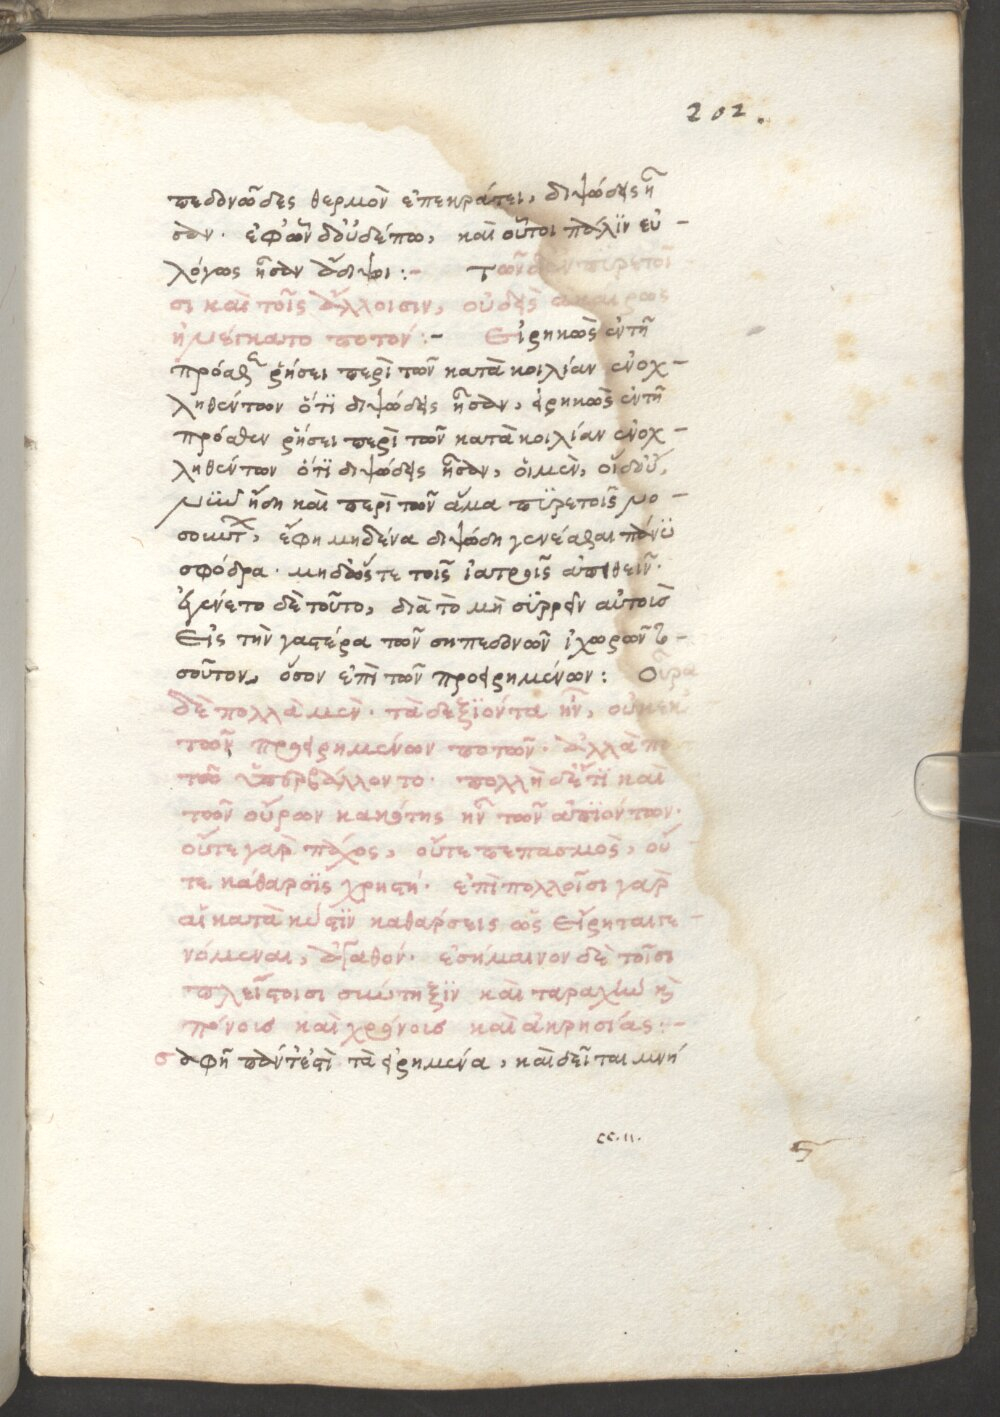 202.
πεδονῶδες θερμὸν ἐπεκράτει, διψώδεις ἦ
σαν. ἐφ' ὧν δ' οὐδέπω, καὶ οὗτοι πάλιν εὐ-
λόγως ἦσαν ἄδιψοι :- Τῶν πυρετοῖ
σι καὶ τοῖς ἄλλοισιν, οὐδεὶς ἀκαίρως
ἠνέγκατο ποτόν :- Εἰρηκὼς ἐν τῇ
πρόσθεν ῥήσει περὶ τῶν κατὰ κοιλίαν ἐνοχ-
ληθέντων ὅτι διψώδεις ἦσαν, εἰρηκὼς ἐν τῇ
πρόσθεν ῥήσει περὶ τῶν κατὰ κοιλίαν ἐνοχ-
ληθέντων ὅτι διψώδεις ἦσαν, οἱ μὲν, οἱ δ' οὔ,
νῦν ἤδη καὶ περὶ τῶν ἅμα πυρετοῖς νο-
σούντ, ἔφη μηδένα διψώδη γενέσθαι πάνυ
σφόδρα. μηδ' ὥστε τοῖς ἰατροῖς ἀπειθεῖν.
ἐγένετο δὲ τοῦτο, διὰ τὸ μὴ συρρεῖν αὐτοῖς
Εἰς τὴν γαστέρα τῶν σηπεδονωδῶν ἰχωρῶν το-
σοῦτον, ὅσον ἐπὶ τῶν προειρημένων : Οὖρα
δὲ πολλὰ μὲν. τὰ διεξιόντα ἦν, οὐκ ἐκ
τῶν προειρημένων ποτῶν. ἀλλὰ πο
του ὑπερβάλλοντο. πολλὴ δέ τι καὶ
τῶν οὔρων κακότης ἦν τῶν ἀπιόντων.
οὔτε γὰρ πάχος, οὔτε πεπασμὸς, οὔ
τε κάθαρσις χρηστή. ἐπὶ πολλοῖσι γὰρ
αἱ κατὰ κύστιν καθάρσεις ὡς Εἴρηται γε
νόμεναι, ἀγαθόν. ἐσήμαινον δὲ τοῖσι
πλείστοισι σύντηξιν καὶ ταραχὴν καὶ
πόνοις καὶ χρόνοις καὶ ἀκρησίας :-
σαφῆ πάντ' ἐστὶ τὰ εἰρημένα, καὶ δεῖται μνή
cc.ii.